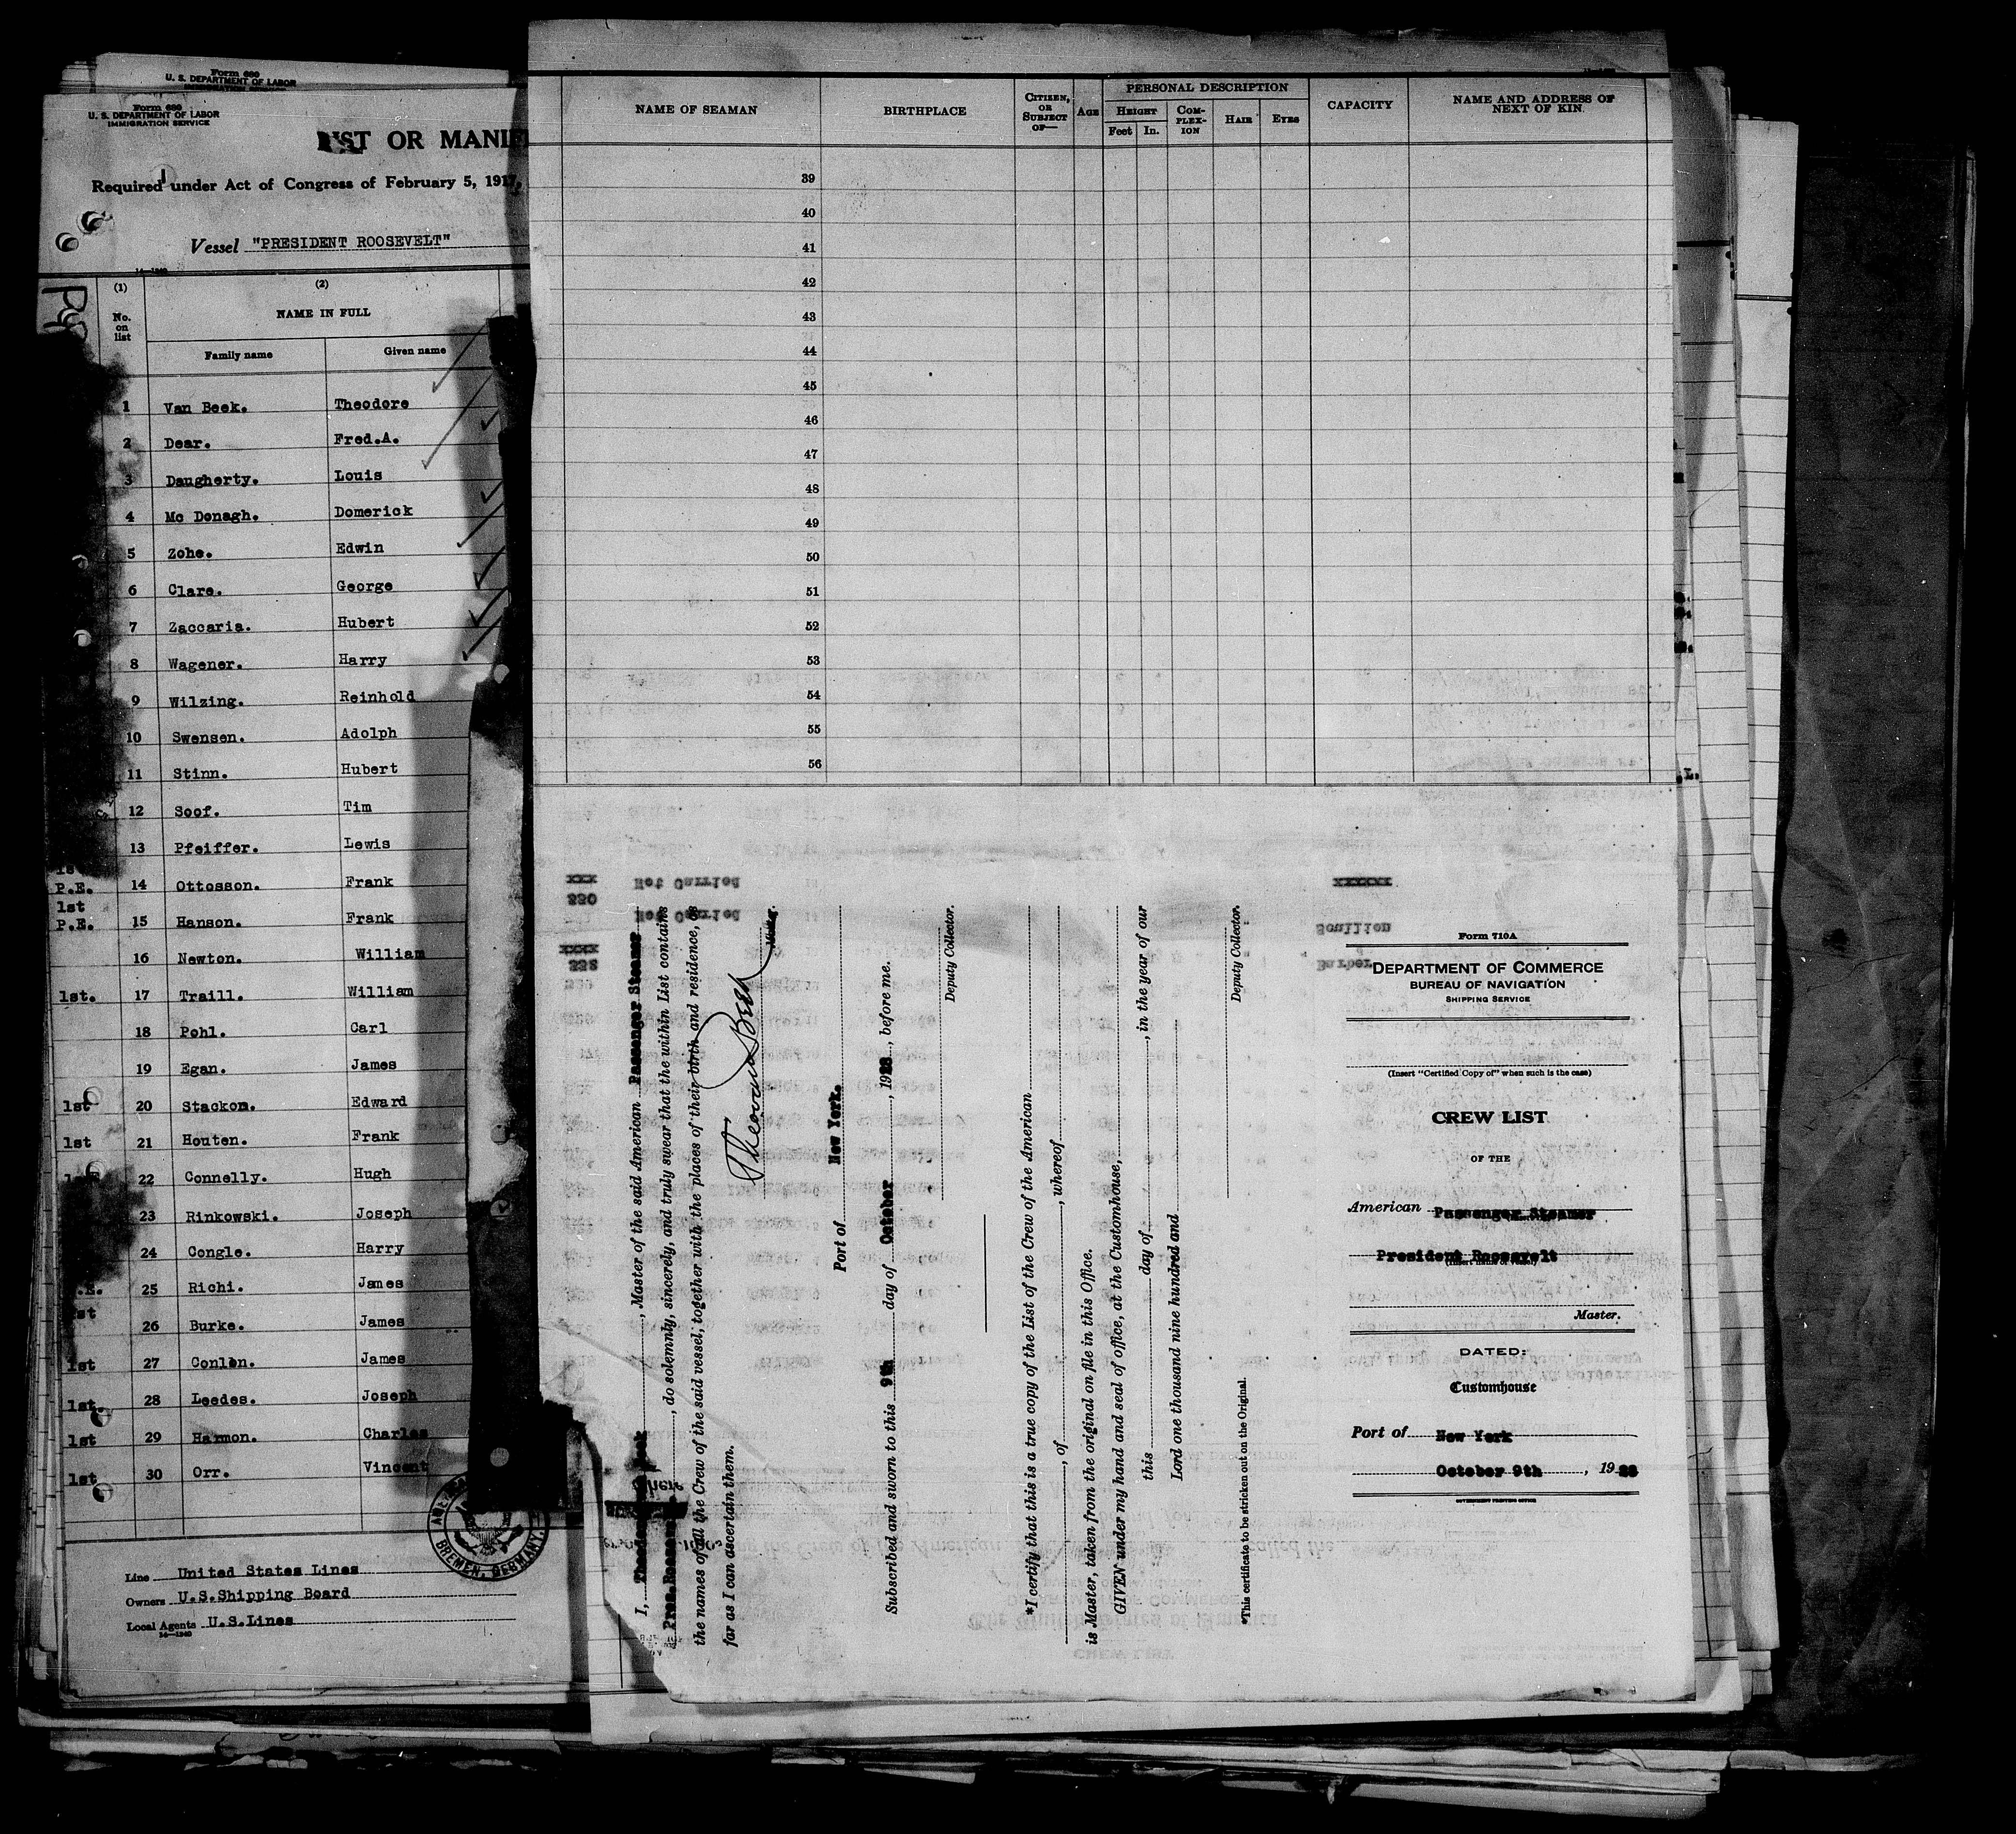 Form 680
U. S. DEPARTMENT OF LABOR
Form 680
U. S. DEPARTMENT OF LABOR
IMMIGRATION SERVICE
LIST OR MANIF
Required under Act of Congress of February 5, 1917,
Vessel "PRESIDENT ROOSEVELT"
(1) (2)
No. on list
NAME IN FULL
Family name Given name
1 Van Beek. Theodore
2 Dear. Fred.A.
3 Daugherty. Louis
4 Mc Donagh. Domerick
5 Zohe. Edwin
6 Clare. George
7 Zaccaria. Hubert
8 Wagener. Harry
9 Wilzing. Reinhold
10 Swensen. Adolph
11 Stinn. Hubert
12 Soof. Tim
13 Pfeiffer. Lewis
P.E. 14 Ottosson. Frank
1st
P.E. 15 Hanson. Frank
16 Newton. William
1st. 17 Traill. William
18 Pohl. Carl
19 Egan. James
1st 20 Stackon. Edward
1st 21 Houten. Frank
22 Connelly. Hugh
23 Rinkowski. Joseph
24 Congle. Harry
25 Richi. James
26 Burke. James
1st 27 Conlon. James
1st. 28 Leedes. Joseph
1st 29 Harmon. Charles
1st 30 Orr. Vincent
BREMEN, GERMANY.
Line United States Lines
Owners U.S.Shipping Board
Local Agents U.S.Lines
14—1240
NAME OF SEAMAN BIRTHPLACE CITIZEN, OR SUBJECT OF— AGE PERSONAL DESCRIPTION CAPACITY NAME AND ADDRESS OF NEXT OF KIN.
HEIGHT COM-PLEX-ION HAIR EYES
Feet In.
39
40
41
42
43
44
45
46
47
48
49
50
51
52
53
54
55
56
XXX Not Carried XXXXXX
330 Not Carried Scullion
XXXX
338 Barber
I, Theodore , Master of the said American Passenger Steamer
Pres. Roosevelt , do solemnly, sincerely, and truly swear that the within List contains
the names of all the Crew of the said vessel, together with the places of their birth and residence, as
far as I can ascertain them.
Theodore van Beek
Master.
Port of New York.
Subscribed and sworn to this 9th day of October , 1928 , before me.
Deputy Collector.
*I certify that this is a true copy of the List of the Crew of the American
, of , whereof
is Master, taken from the original on file in this Office.
GIVEN under my hand and seal of office, at the Customhouse,
this day of , in the year of our
Lord one thousand nine hundred and
Deputy Collector.
*This certificate to be stricken out on the Original.
Form 710A
DEPARTMENT OF COMMERCE
BUREAU OF NAVIGATION
SHIPPING SERVICE
(Insert "Certified Copy of" when such is the case)
CREW LIST
OF THE
American Passenger Steamer
President Roosevelt
(Insert name of vessel)
Master.
DATED:
Customhouse
Port of New York
October 9th , 1928
GOVERNMENT PRINTING OFFICE